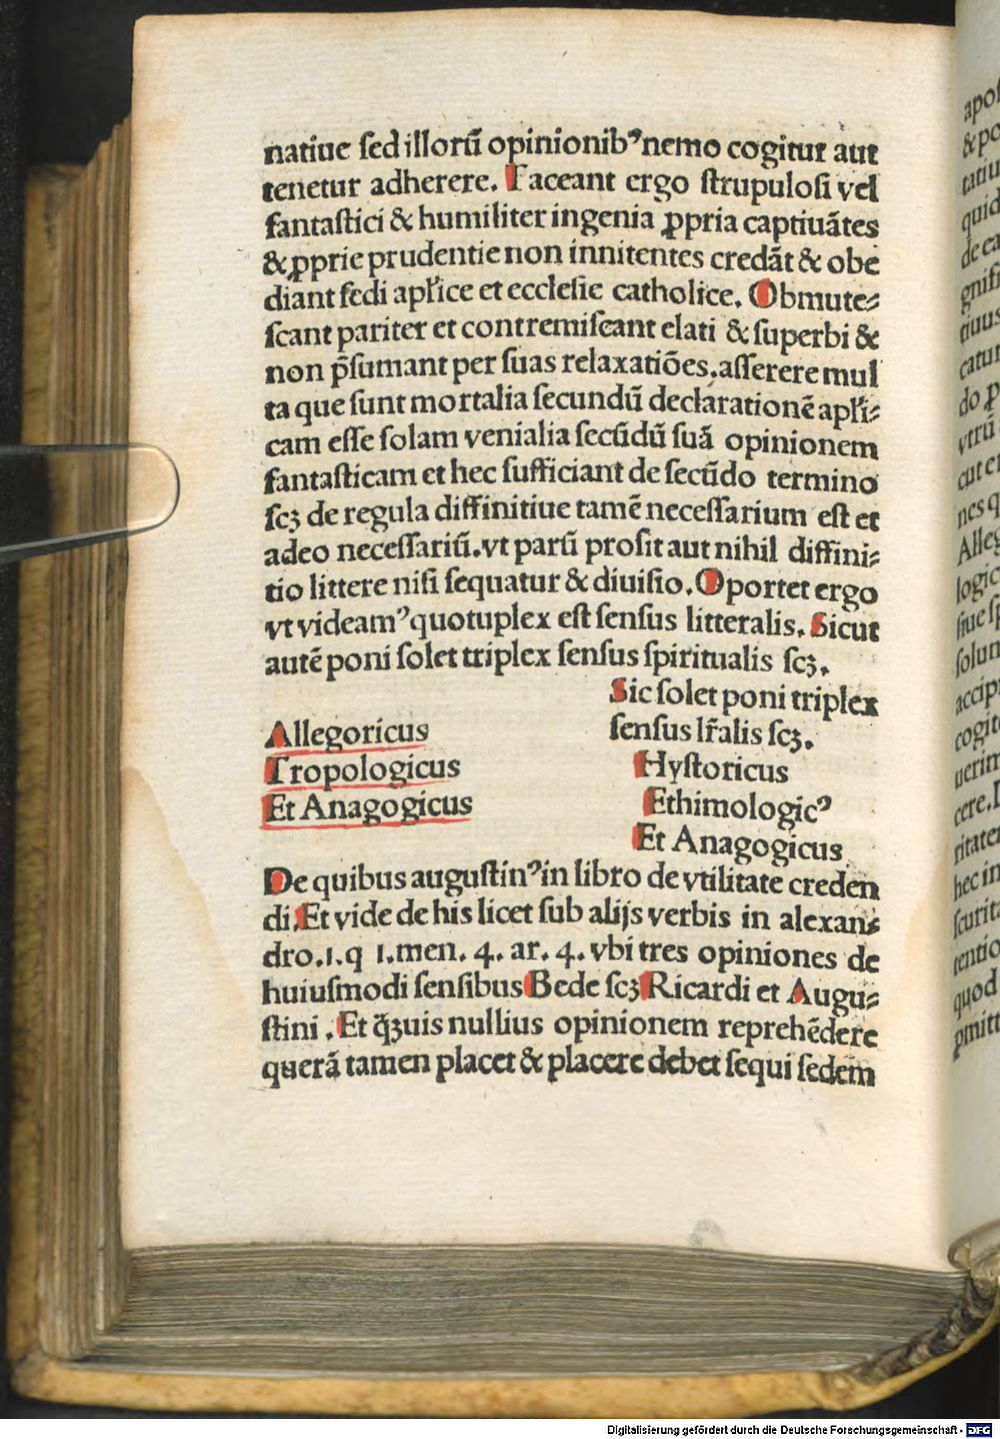 natiue ſed illorū opinionibꝰ nemo cogitur aut
tenetur adherere. Taceant ergo ſtrupuloſi vel
fantaſtici & humiliter ingenia ꝓpria captiuātes
& ꝓprie prudentie non innitentes credāt & obe
diant ſedi apl̓ice et eccleſie catholice. Obmute⸗
ſcant pariter et contremiſcant elati & ſuperbi &
non p̄ſumant per ſuas relaxatiōes, aſſerere mul
ta que ſunt mortalia ſecundū declarationē apl̓i⸗
cam eſſe ſolam venialia ſecūdū ſuā opinionem
fantaſticam et hec ſufficiant de ſecūdo termino
ſcꝫ de regula diffinitiue tamē neceſſarium eſt et
adeo neceſſariū. vt parū proſit aut nihil diffini⸗
tio littere niſi ſequatur & diuiſio. Oportet ergo
vt videamꝰ quotuplex eſt ſenſus litteralis. Sicut
autē poni ſolet triplex ſenſus ſpiritualis ſcꝫ.
Allegoricus
Tropologicus
Et Anagogicus
Sic ſolet poni triplex
ſenſus lr̄alis ſcꝫ.
Hyſtoricus
Ethimologicꝰ
Et Anagogicus
De quibus auguſtinꝰ in libro de vtilitate creden
di. Et vide de his licet ſub alijs verbis in alexan⸗
dro. 1. q 1. men. 4. ar. 4. vbi tres opiniones de
huiuſmodi ſenſibus Bede ſcꝫ Ricardi et Augu⸗
ſtini. Et q̄ꝫuis nullius opinionem reprehēdere
querā tamen placet & placere debet ſequi ſedem
Digitalisierung gefördert durch die Deutsche Forschungsgemeinschaft - DFG